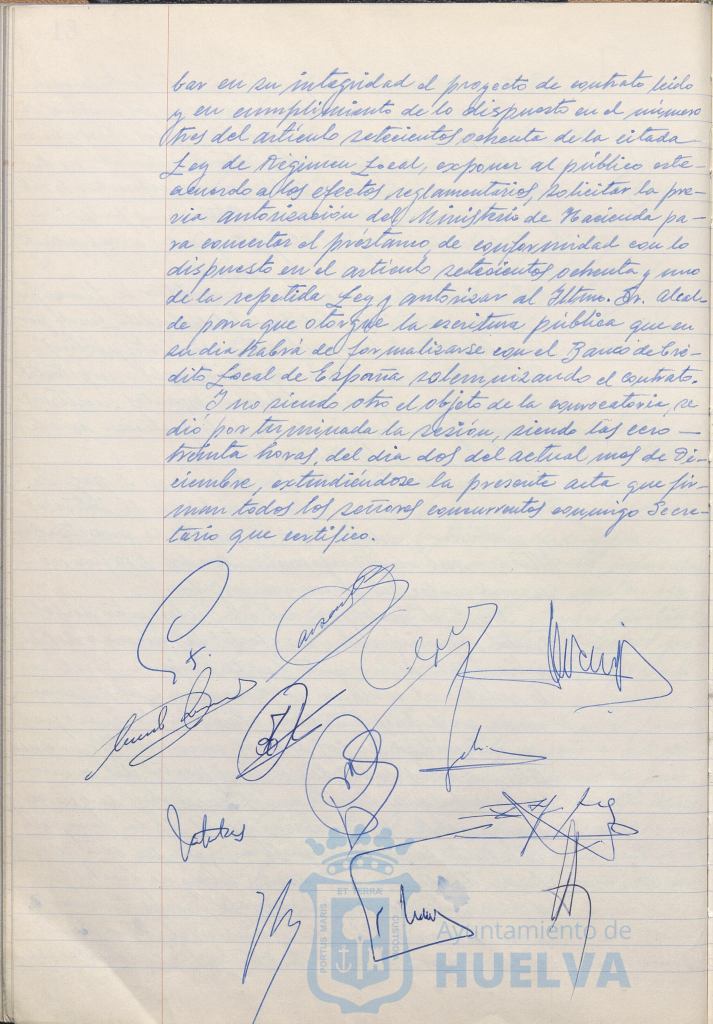 bar en su integridad el proyecto de contrato leído
y en cumplimiento de lo dispuesto en el número
tres del artículo setecientos ochenta de la citada
Ley de Régimen Local, exponer al público este
acuerdo a los efectos reglamentarios, solicitar la pre-
via autorización del Ministerio de Hacienda pa-
ra concertar el préstamo, de conformidad con lo
dispuesto en el artículo setecientos ochenta y uno
de la repetida Ley y autorizar al Iltmo. Sr. Alcal-
de para que otorgue la escritura pública que en
su dia habrá de formalizarse con el Banco de Cré-
dito Local de España solemnizando el contrato.
Y no siendo otro el objeto de la convocatoria, se
dió por terminada la sesión, siendo las cero
treinta horas, del dia dos del actual mes de Di-
ciembre, extendiéndose la presente acta que fir-
man todos los señores concurrentes conmigo Secre-
tario que certifico.
ET TERRÆ
PORTUS MARIS
CUSTODIA
Ayuntamiento de
HUELVA